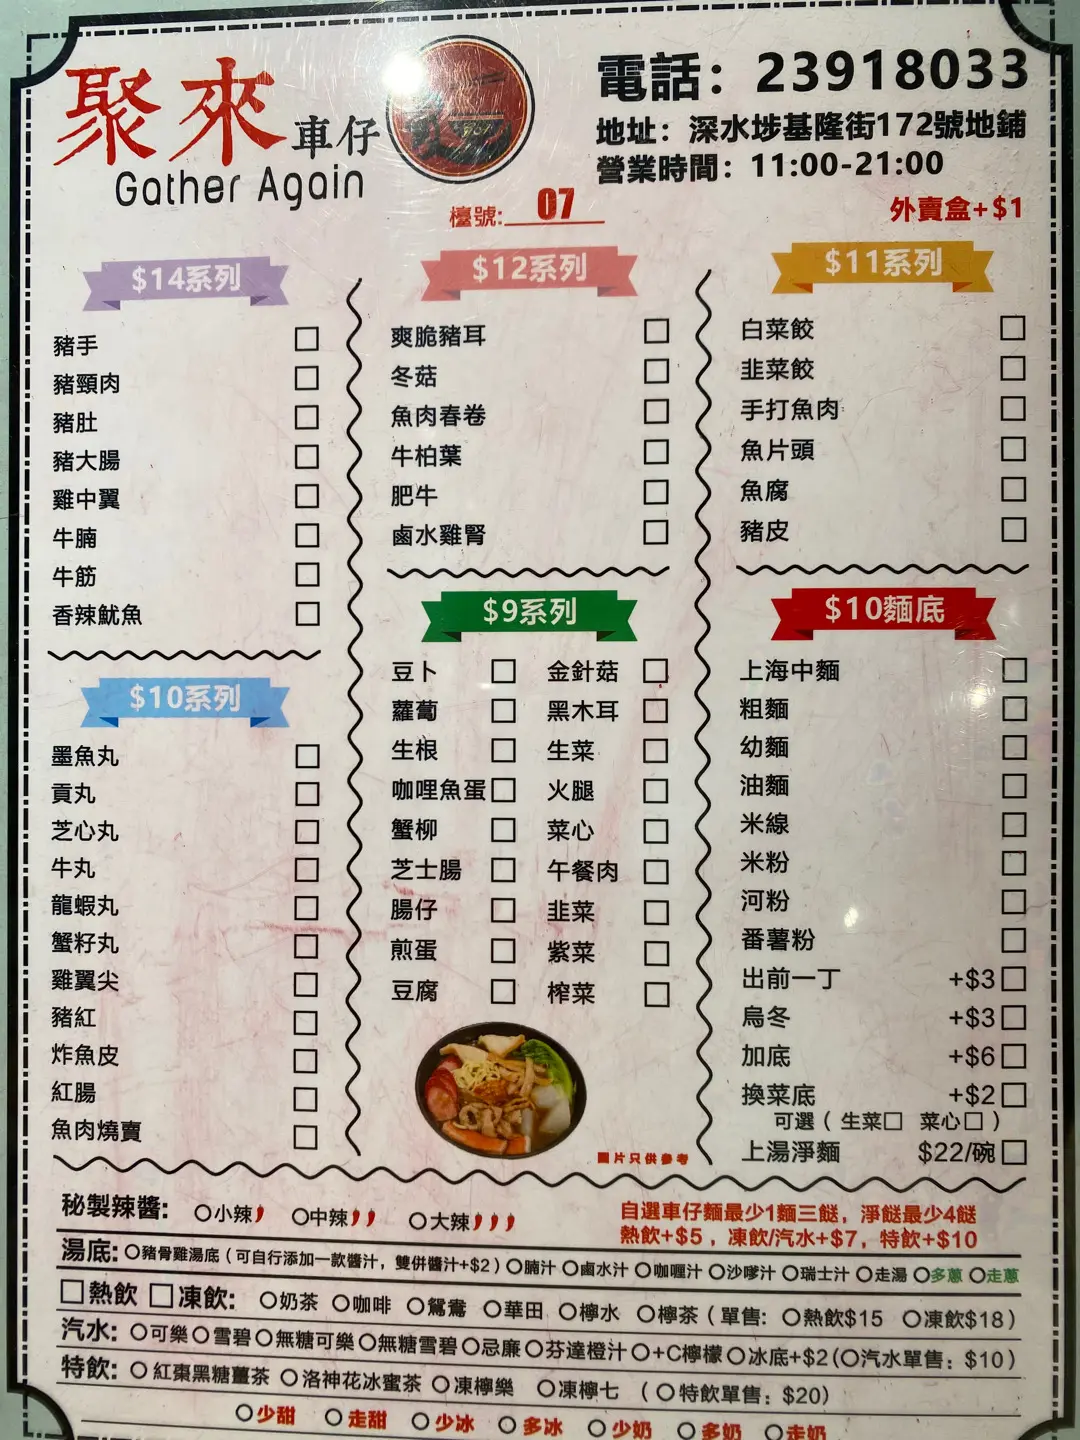 聚來車仔
Gather Again
電話：23918033
地址：深水埗基隆街172號地鋪
營業時間：11:00-21:00
檯號: 07
外賣盒+$1
$14系列
豬手
豬頸肉
豬肚
豬大腸
雞中翼
牛腩
牛筋
香辣魷魚
$10系列
墨魚丸
貢丸
芝心丸
牛丸
龍蝦丸
蟹籽丸
雞翼尖
豬紅
炸魚皮
紅腸
魚肉燒賣
$12系列
爽脆豬耳
冬菇
魚肉春卷
牛柏葉
肥牛
鹵水雞腎
$9系列
豆卜 金針菇
蘿蔔 黑木耳
生根 生菜
咖哩魚蛋 火腿
蟹柳 菜心
芝士腸 午餐肉
腸仔 韭菜
煎蛋 紫菜
豆腐 榨菜
圖片只供參考
$11系列
白菜餃
韭菜餃
手打魚肉
魚片頭
魚腐
豬皮
$10麵底
上海中麵
粗麵
幼麵
油麵
米線
米粉
河粉
番薯粉
出前一丁 +$3
烏冬 +$3
加底 +$6
換菜底 +$2
可選（生菜 菜心）
上湯淨麵 $22/碗
秘製辣醬: 小辣 中辣 大辣
自選車仔麵最少1麵三餸，淨餸最少4餸
熱飲+$5，凍飲/汽水+$7，特飲+$10
湯底: 豬骨雞湯底（可自行添加一款醬汁，雙併醬汁+$2）腩汁 鹵水汁 咖喱汁 沙嗲汁 瑞士汁 走湯 多蔥 走蔥
熱飲 凍飲: 奶茶 咖啡 鴛鴦 華田 檸水 檸茶（單售: 熱飲$15 凍飲$18）
汽水: 可樂 雪碧 無糖可樂 無糖雪碧 忌廉 芬達橙汁 +C檸檬 冰底+$2(汽水單售：$10)
特飲: 紅棗黑糖薑茶 洛神花冰蜜茶 凍檸樂 凍檸七 （特飲單售：$20）
少甜 走甜 少冰 多冰 少奶 多奶 走奶